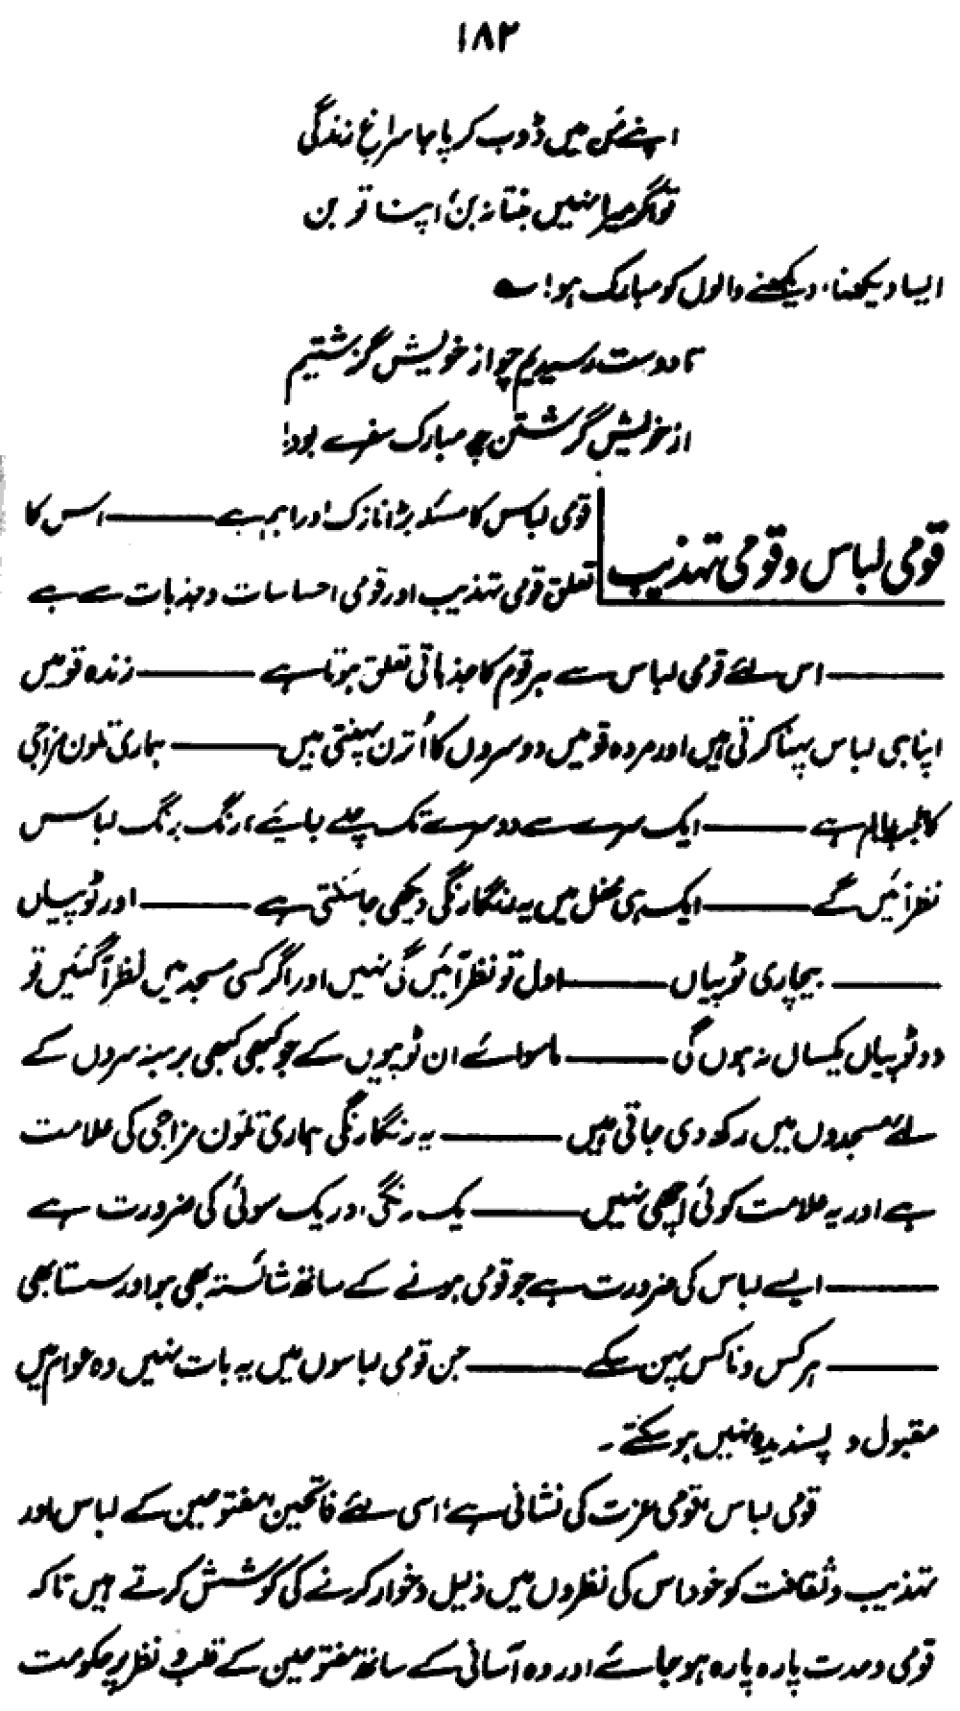 ۱۸۲
اپنے مَن میں ڈوب کر پا جا سراغِ زندگی
تو اگر میرا نہیں بنتا نہ بن، اپنا تو بن
ایسا دیکھنا، دیکھنے والوں کو مبارک ہو! ؎
تا دوست رسیدیم چو از خویش گزشتیم
از خویش گزشتن چہ مبارک سفرے بود!
قومی لباس و قومی تہذیب
قومی لباس کا مسئلہ بڑا نازک اور اہم ہے ——— اس کا
تعلق قومی تہذیب اور قومی احساسات و جذبات سے ہے
——— اس لئے قومی لباس سے ہر قوم کا جذباتی تعلق ہوتا ہے ——— زندہ قومیں
اپنا ہی لباس پہنا کرتی ہیں اور مردہ قومیں دوسروں کا اُترن پہنتی ہیں ——— ہماری تلون مزاجی
کا عجب عالم ہے ——— ایک سرے سے دوسرے تک چلے جایئے، رنگ برنگ لباس
نظر آئیں گے ——— ایک ہی محفل میں یہ رنگا رنگی دیکھی جا سکتی ہے ——— اور ٹوپیاں
——— بیچاری ٹوپیاں ——— اول تو نظر آئیں گی نہیں اور اگر کسی مسجد میں نظر آ گئیں تو
دو ٹوپیاں یکساں نہ ہوں گی ——— ماسوائے ان ٹوپیوں کے جو کبھی کبھی برہنہ سروں کے
لئے مسجدوں میں رکھ دی جاتی ہیں ——— یہ رنگا رنگی ہماری تلون مزاجی کی علامت
ہے اور یہ علامت کوئی اچھی نہیں ——— یک رنگی اور یک سوئی کی ضرورت ہے
——— ایسے لباس کی ضرورت ہے جو قومی ہونے کے ساتھ شائستہ بھی ہو اور سستا بھی
——— ہر کس و ناکس پہن سکے ——— جن قومی لباسوں میں یہ بات نہیں وہ عوام میں
مقبول و پسندیدہ نہیں ہو سکتے۔
قومی لباس، قومی عزت کی نشانی ہے؛ اسی لئے فاتحین، مفتوحین کے لباس اور
تہذیب و ثقافت کو خود اس کی نظروں میں ذلیل و خوار کرنے کی کوشش کرتے ہیں تاکہ
قومی وحدت پارہ پارہ ہو جائے اور وہ آسانی کے ساتھ مفتوحین کے قلب و نظر پر حکومت